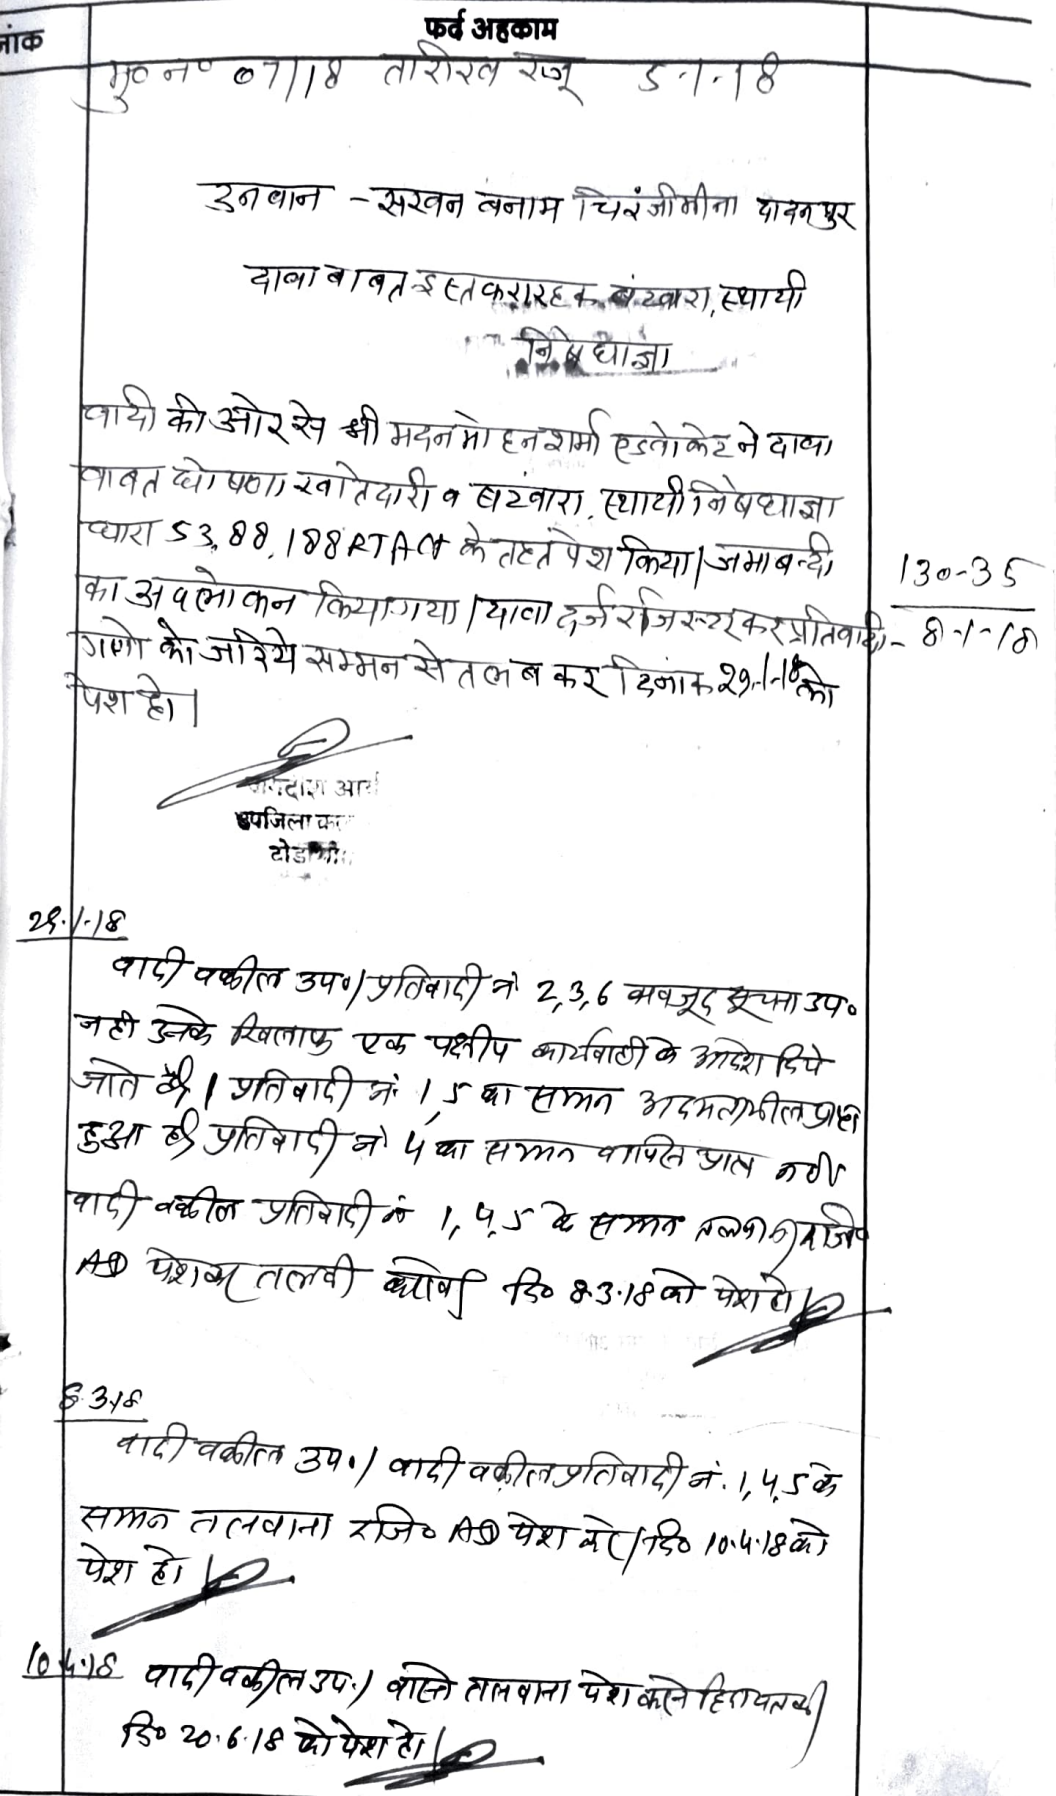 नांक
फर्द अहकाम
मु० न० 07/18 तारीख रजू 5-1-18
उनवान - सखन बनाम चिरंजीमीना दादनपुर
दावा बाबत इस्तकरारहक बंटवारा, स्थायी
निषेधाज्ञा
वादी की ओर से श्री मदन मोहन शर्मा एडवोकेट ने दावा
बाबत घोषणा खातेदारी व बटंवारा, स्थायी निषेधाज्ञा
धारा 53, 88, 188 RTAct के तहत पेश किया। जमाबन्दी
का अवलोकन किया गया। दावा दर्ज रजिस्टर कर प्रतिवादी-
गणो को जरिये सम्मन से तलब कर दिनांक 29-1-18 को
पेश हो।
130-35
8-1-18
उपजिला कल
टोडाभी
29.1.18
वादी वकील उप०। प्रतिवादी नं 2,3,6 बावजूद सूचना उप०
नही उनके खिलाफ एक पक्षीय कार्यवाही के आदेश दिये
जाते है। प्रतिवादी नं. 1,5 का सम्मन अदमतामील प्राप्त
हुआ है। प्रतिवादी नं 4 का सम्मन वापिस प्राप्त नही
वादी वकील प्रतिवादी नं 1,4,5 के सम्मन तलवाना रजि०
AD पेशकर तलवी करावे। दि० 8.3.18 को पेश हो।
8.3.18
वादी वकील उप०। वादी वकील प्रतिवादी नं. 1,4,5 के
सम्मन तलवाना रजि० AD पेश करे। दि० 10.4.18 को
पेश हो।
10.4.18 वादी वकील उप०। वास्ते तलवाना पेश करने हिदायत की।
दि० 20.6.18 को पेश हो।